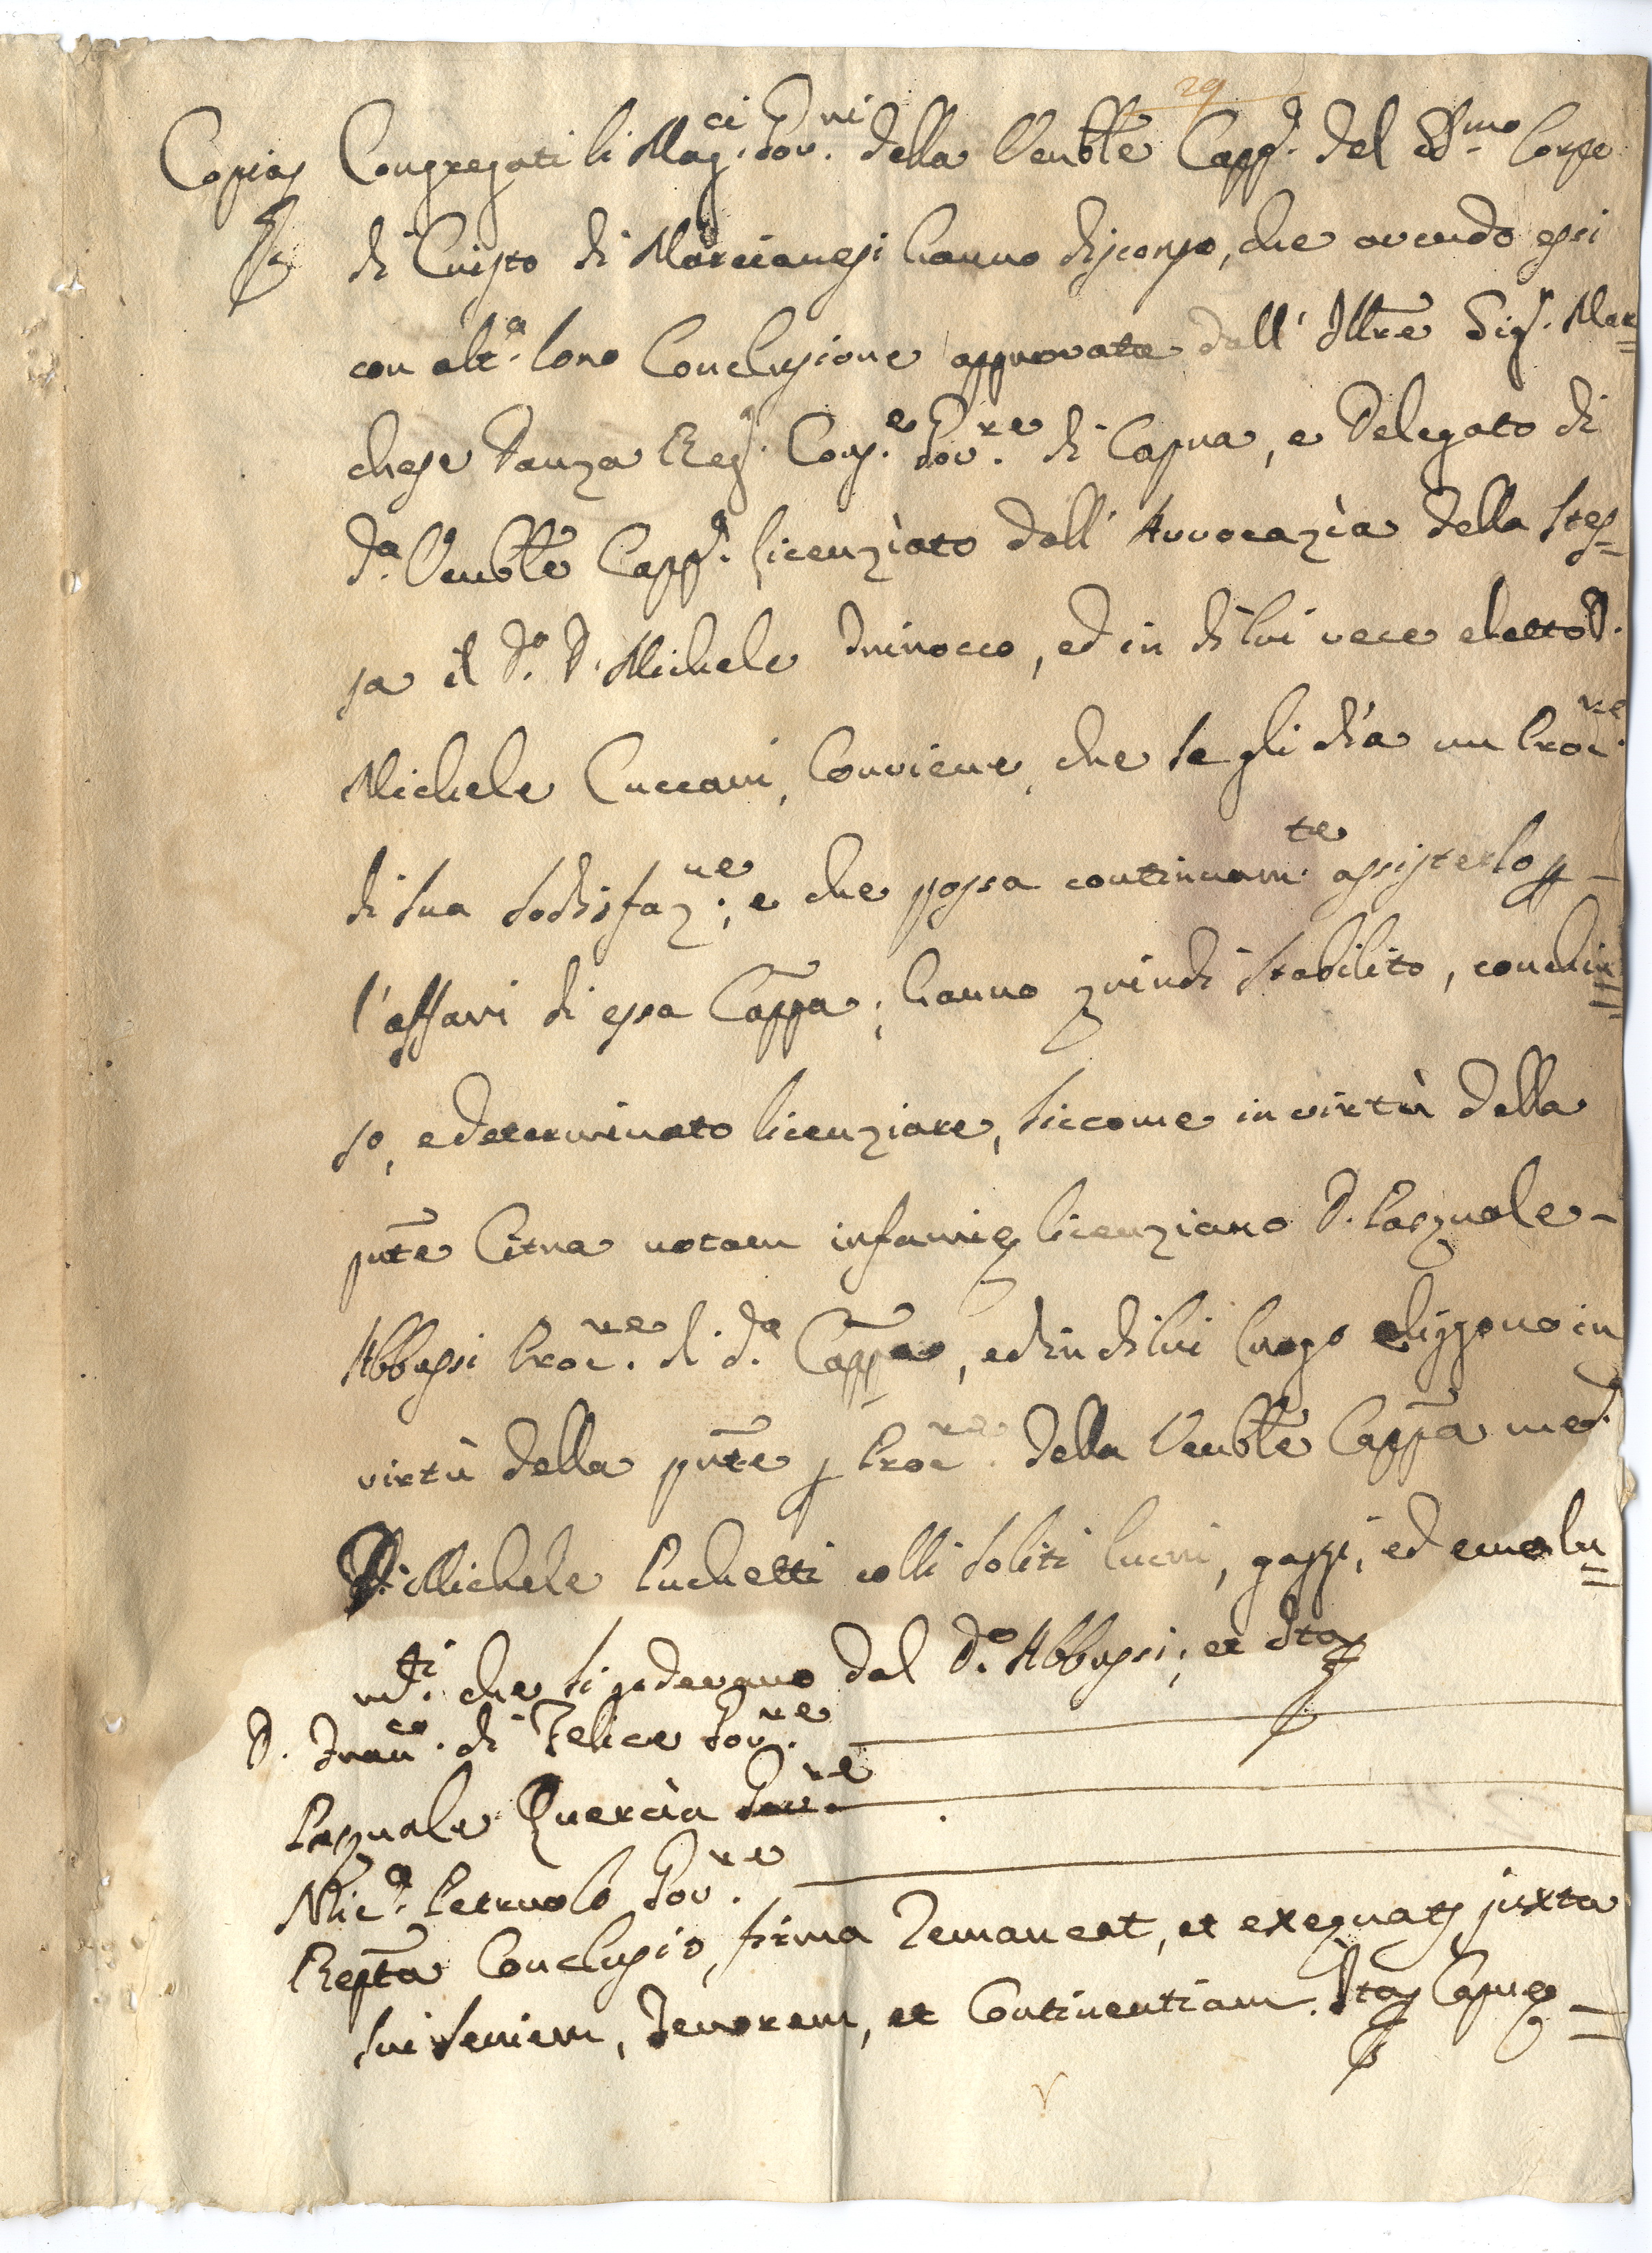 29
Copia Congregati li Mag.ci Gov.ni della Venble Capp.a del SS.mo Corpo
di Cristo di Marcianesi hanno discorso, che avendo essi
con alt.a loro Conclusione approvata dall' Illtre Sig.r Mar=
chese Danza Reg.o Cons.e Gov.re di Capua, e Delegato di
d.a Venble Capp.a licenziato dall' Avvocazìa della stes=
sa il d.o D. Michele, ed in di lui vece eletto D.
Michele Cuccari, conviene, che se gli dia un Proc.re
di sua sodisfaz.ne, e che possa continuam.te assisterlo p
l'affari di essa Cappa, hanno quindi stabilito, conchiu=
so, e determinato licenziare, siccome in virtù della
pnte Citra notam infamię licenziano D. Pasquale
Abbussi Proc.re di d.a Cappa, ed in di lui luogo eliggono in
virtù della pnte p Proc.re della Venble Cappa med.a
D. Michele Puchetti colli soliti lucri, gaggi, ed emolu=
m.ti che si godevano dal d.o Abbussi; et Ita
D. Fran.co di Felice Gov.re
Pasquale Quercia Gov.re
Nic.a Petruolo Gov.re
Repta Conclusio firma remaneat, et exequat juxta
sui seriem, tenorem, et continentiam. Ita Capuę =